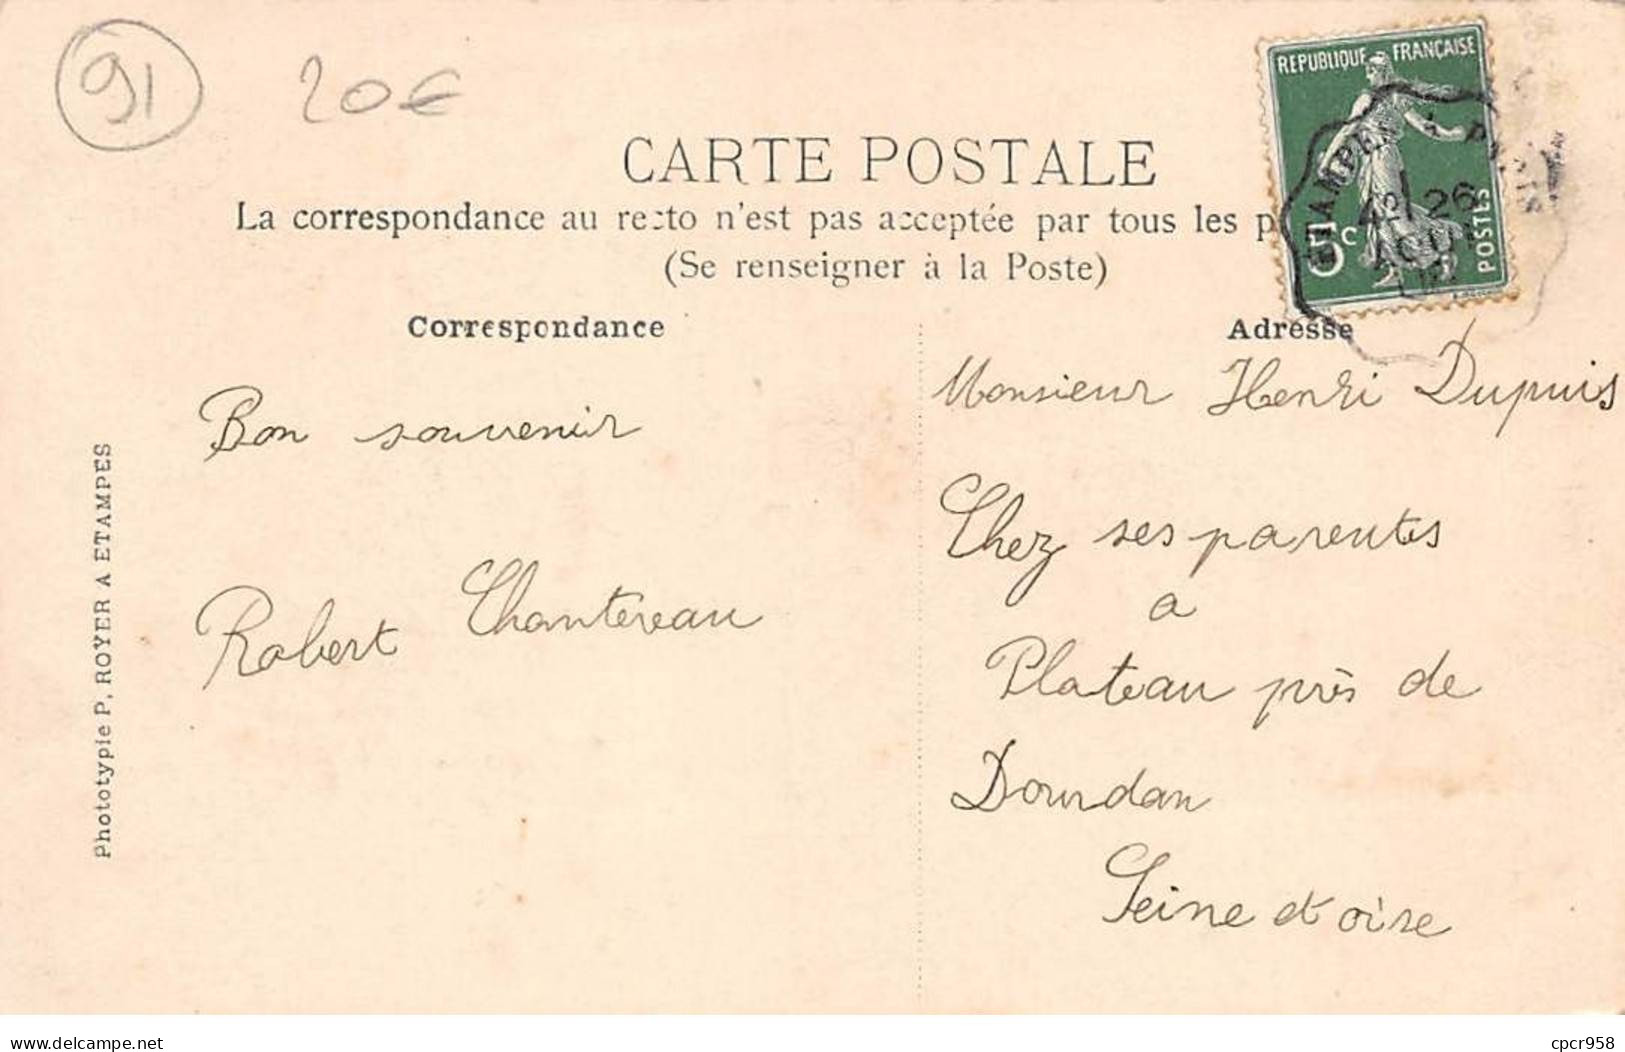 91
20€
REPUBLIQUE FRANÇAISE
5c
POSTES
26
CARTE POSTALE
La correspondance au recto n'est pas acceptée par tous les
(Se renseigner à la Poste)
Correspondance
Adresse
Bon souvenir
Robert Chantereau
Monsieur Henri Dupuis
Chez ses parentes
a
Plateau près de
Dourdan
Seine et oise
Phototypie P. ROYER A ETAMPES
www.delcampe.net
cpcr958